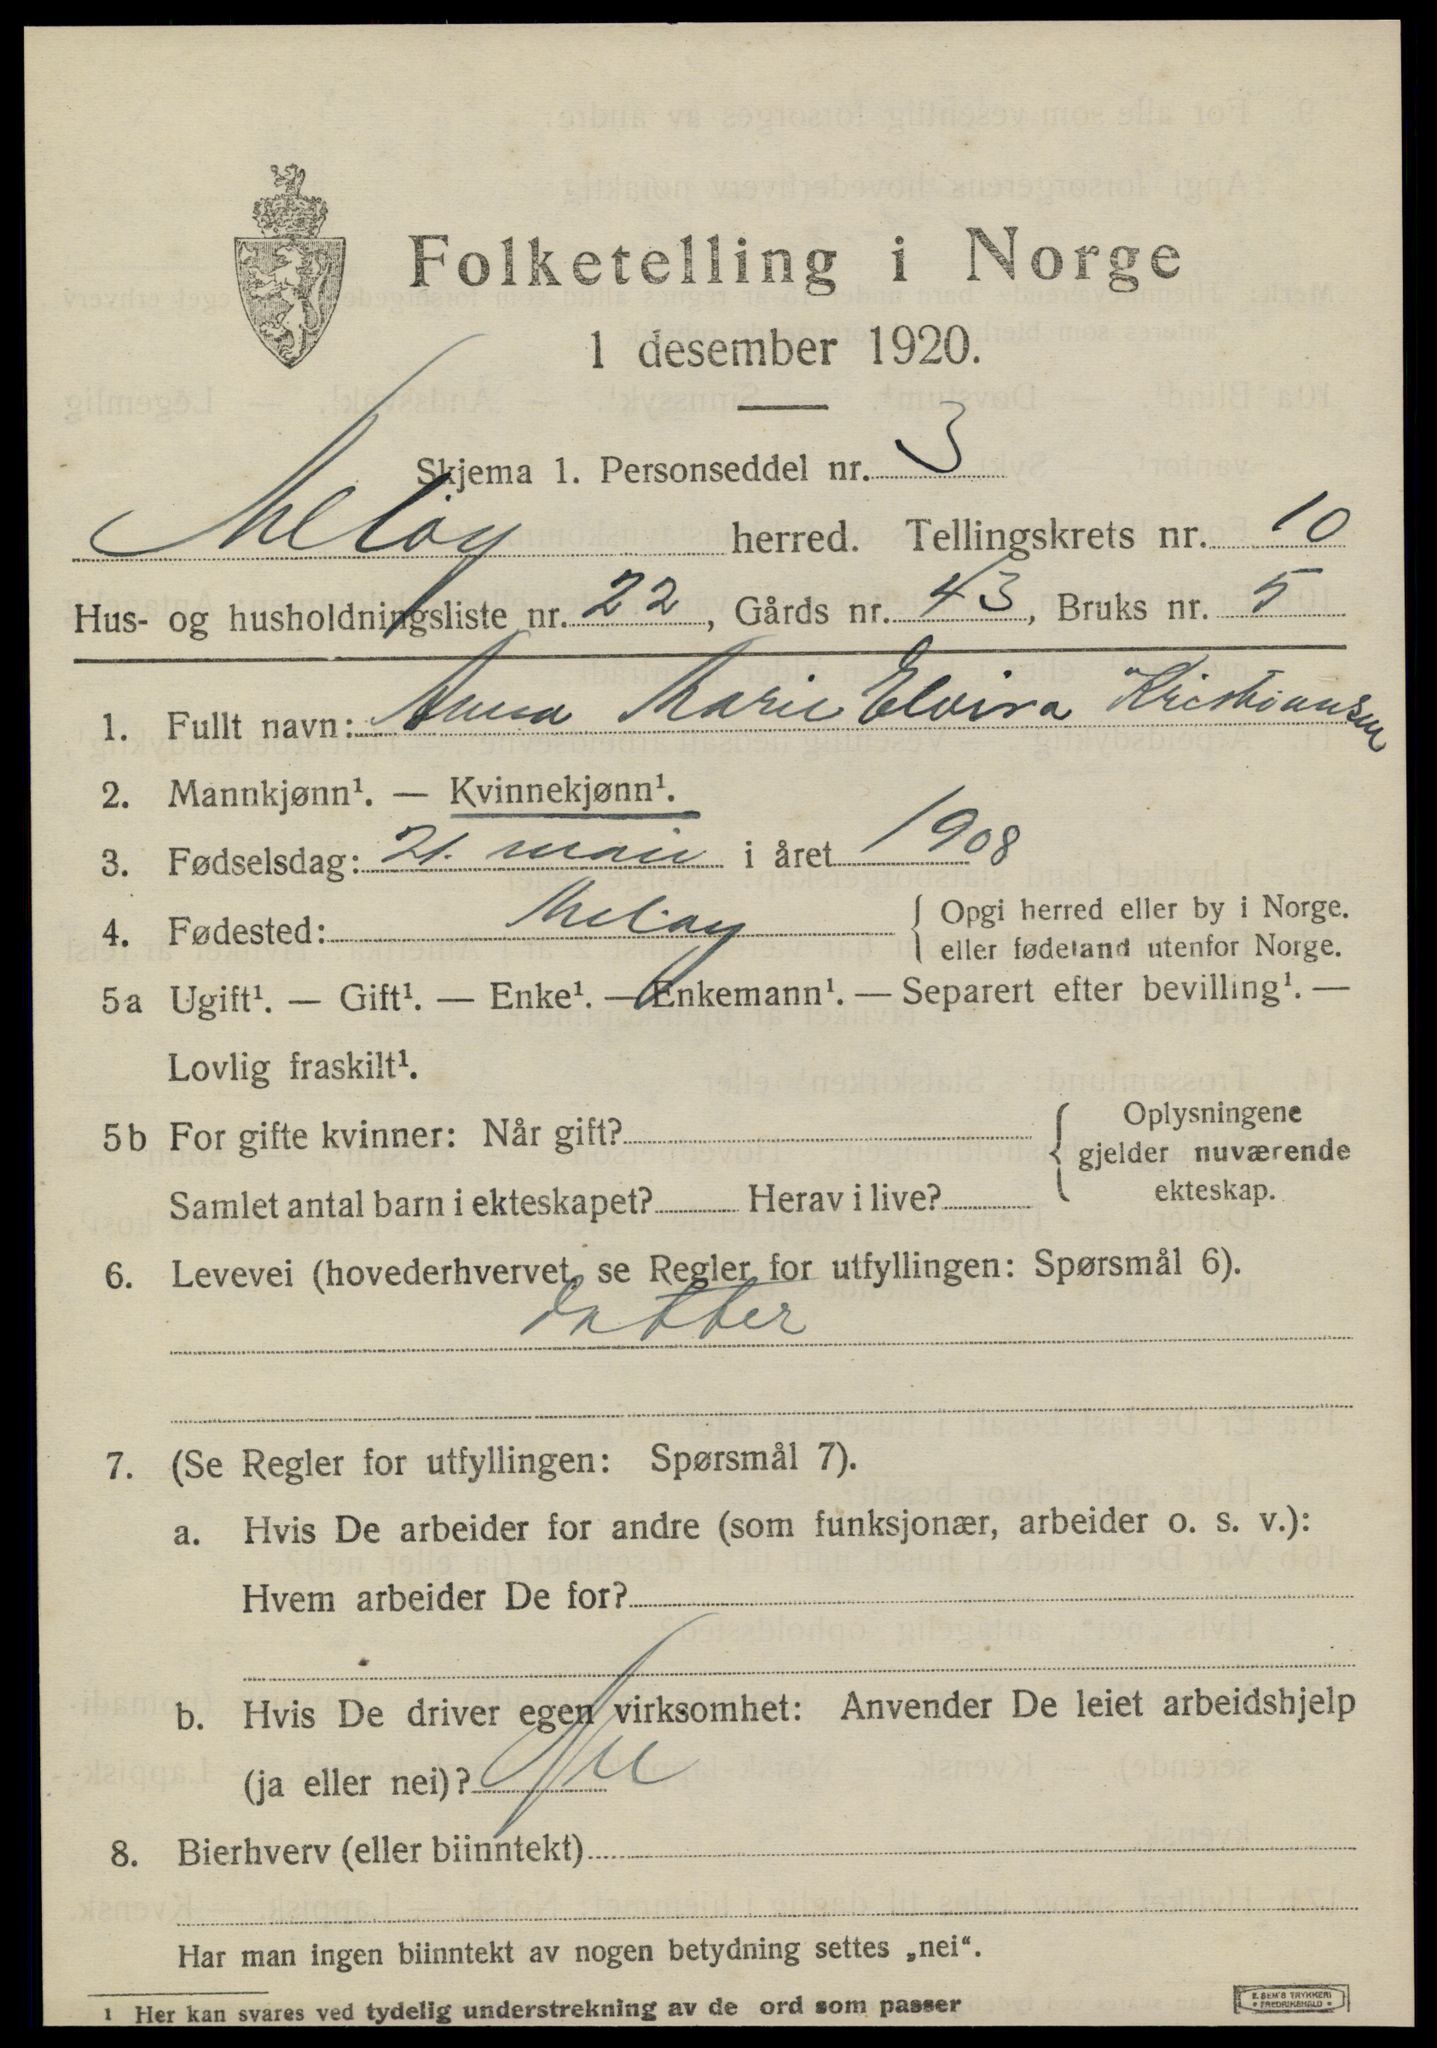 Folketelling i Norge
1 desember 1920.
Skjema 1. Personseddel nr. 3
Meløy herred. Tellingskrets nr. 10
Hus- og husholdningsliste nr. 22, Gårds nr. 43, Bruks nr. 5
1. Fullt navn: Anna Marie Elvira Kristiansen
2. Mannkjønn¹. — Kvinnekjønn¹.
3. Fødselsdag: 21. mai i året 1908
4. Fødested: Meløy { Opgi herred eller by i Norge.
eller fødeland utenfor Norge.
5a Ugift¹. — Gift¹. — Enke¹. — Enkemann¹. — Separert efter bevilling¹. —
Lovlig fraskilt¹.
5b For gifte kvinner: Når gift? { Oplysningene
gjelder nuværende
ekteskap.
Samlet antal barn i ekteskapet? Herav i live?
6. Levevei (hovederhvervet, se Regler for utfyllingen: Spørsmål 6).
datter
7. (Se Regler for utfyllingen: Spørsmål 7).
a. Hvis De arbeider for andre (som funksjonær, arbeider o. s. v.):
Hvem arbeider De for?
b. Hvis De driver egen virksomhet: Anvender De leiet arbeidshjelp
(ja eller nei)? Nei
8. Bierhverv (eller biinntekt)
Har man ingen biinntekt av nogen betydning settes „nei“.
1 Her kan svares ved tydelig understrekning av de ord som passer
E. SEM'S TRYKKERI
* FREDRIKSHALD *